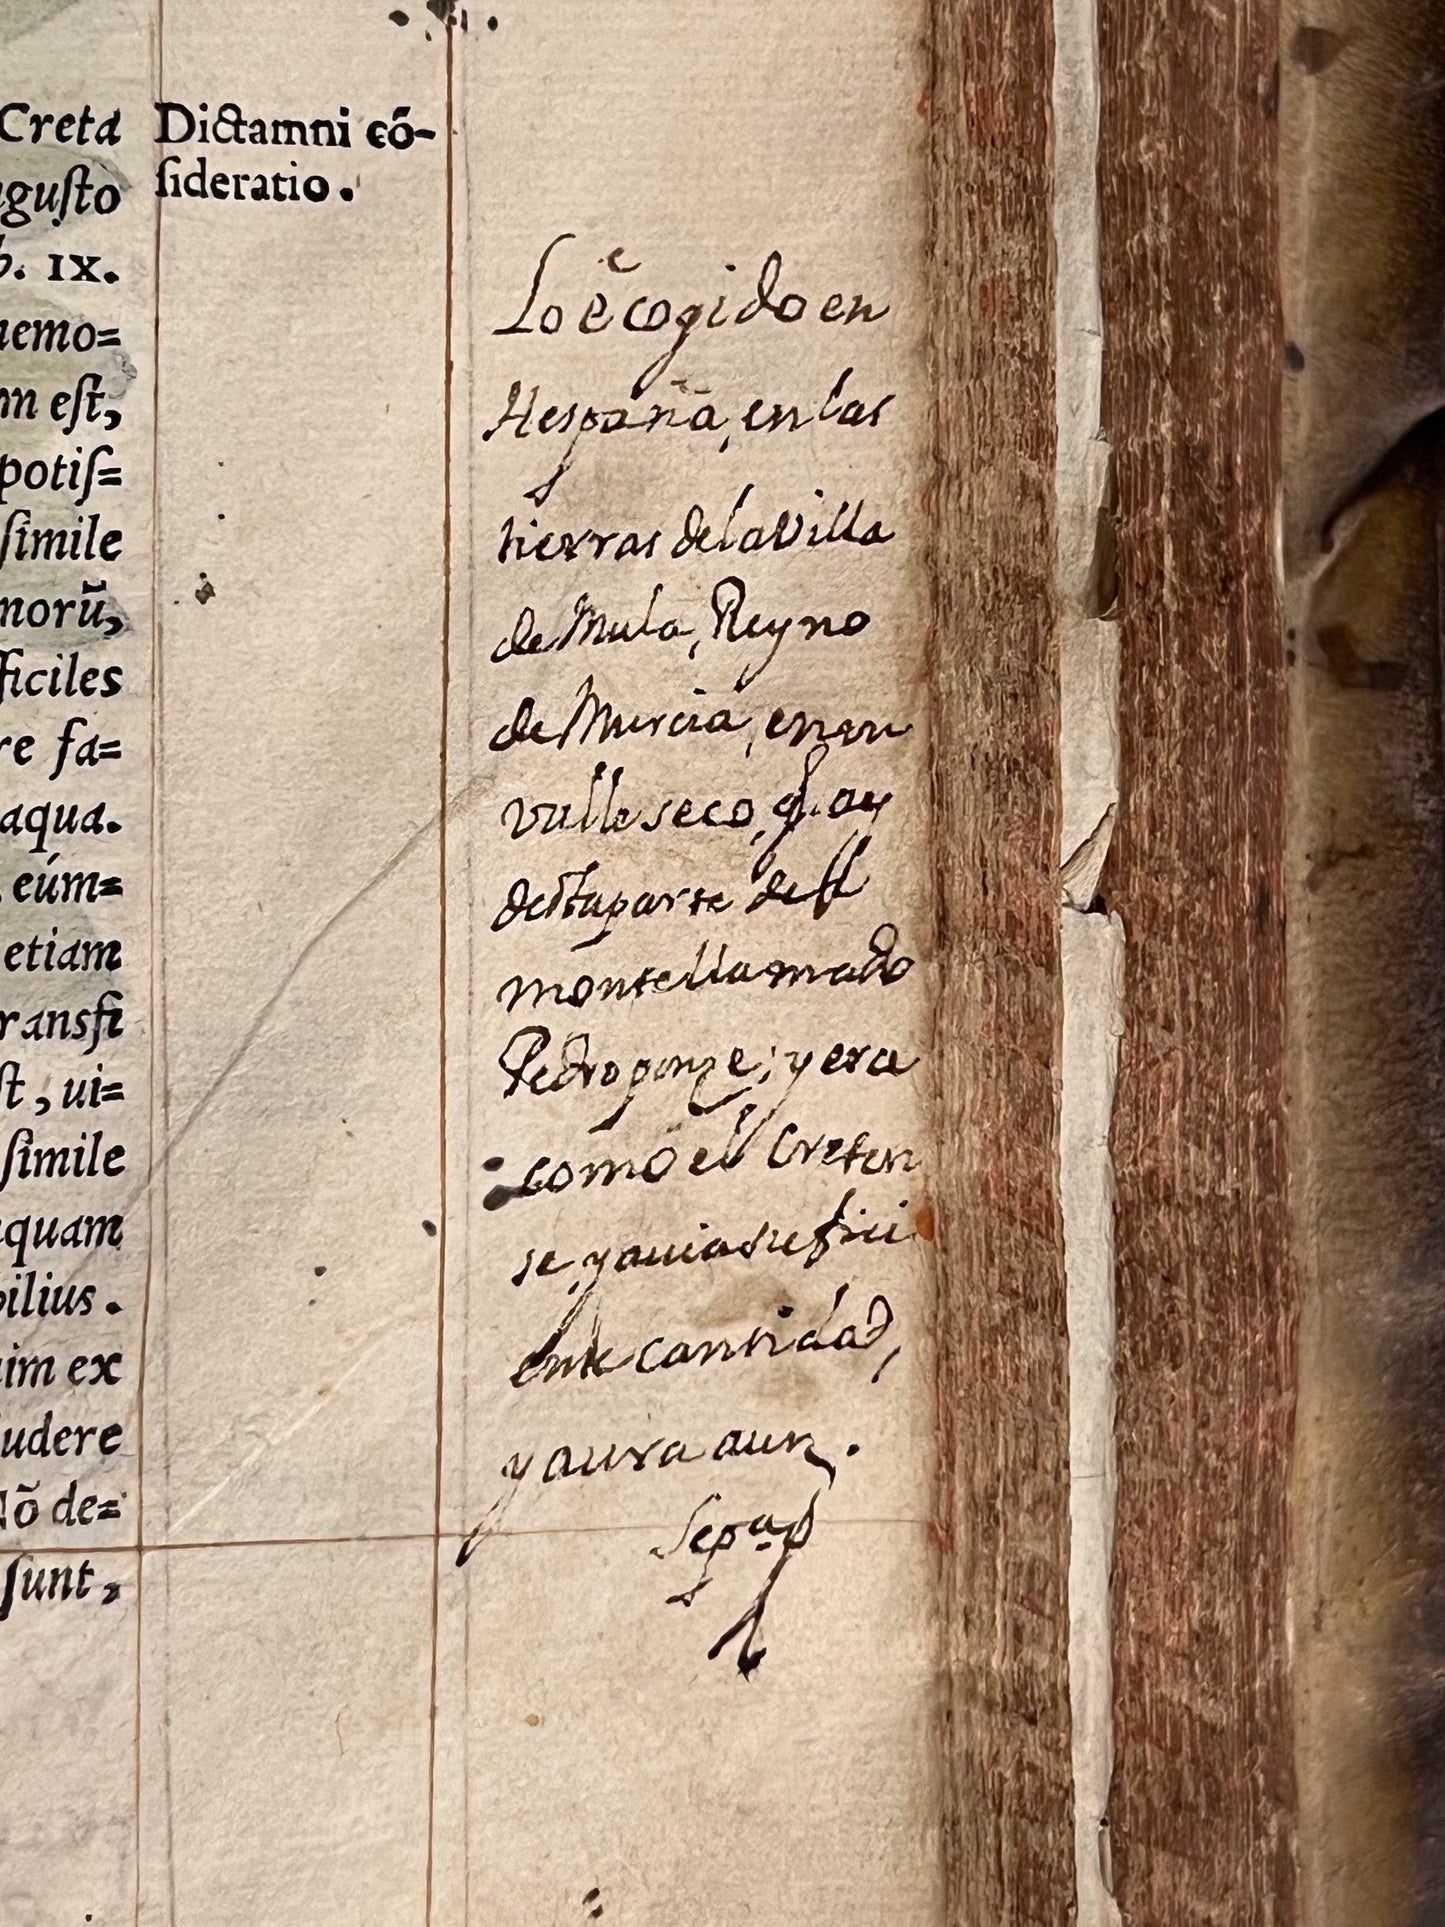 Creta
gusto
b. IX.
nemo=
m est,
potis=
simile
norũ,
ficiles
re fa=
aqua.
eúm=
etiam
ransfi
st, ui=
simile
quam
bilius.
im ex
ludere
Nõ de=
sunt,
Dictamni cõ-
sideratio.
Lo e cogido en
Hespaña, en las
tierras de la Villa
de Mula, Reyno
de Murcia, en un
valle seco, q. ay
desta parte del
monte llamado
Pedro ponze; y era
como el Creten
se, y auia sufici
ente cantidad,
y aura aun.